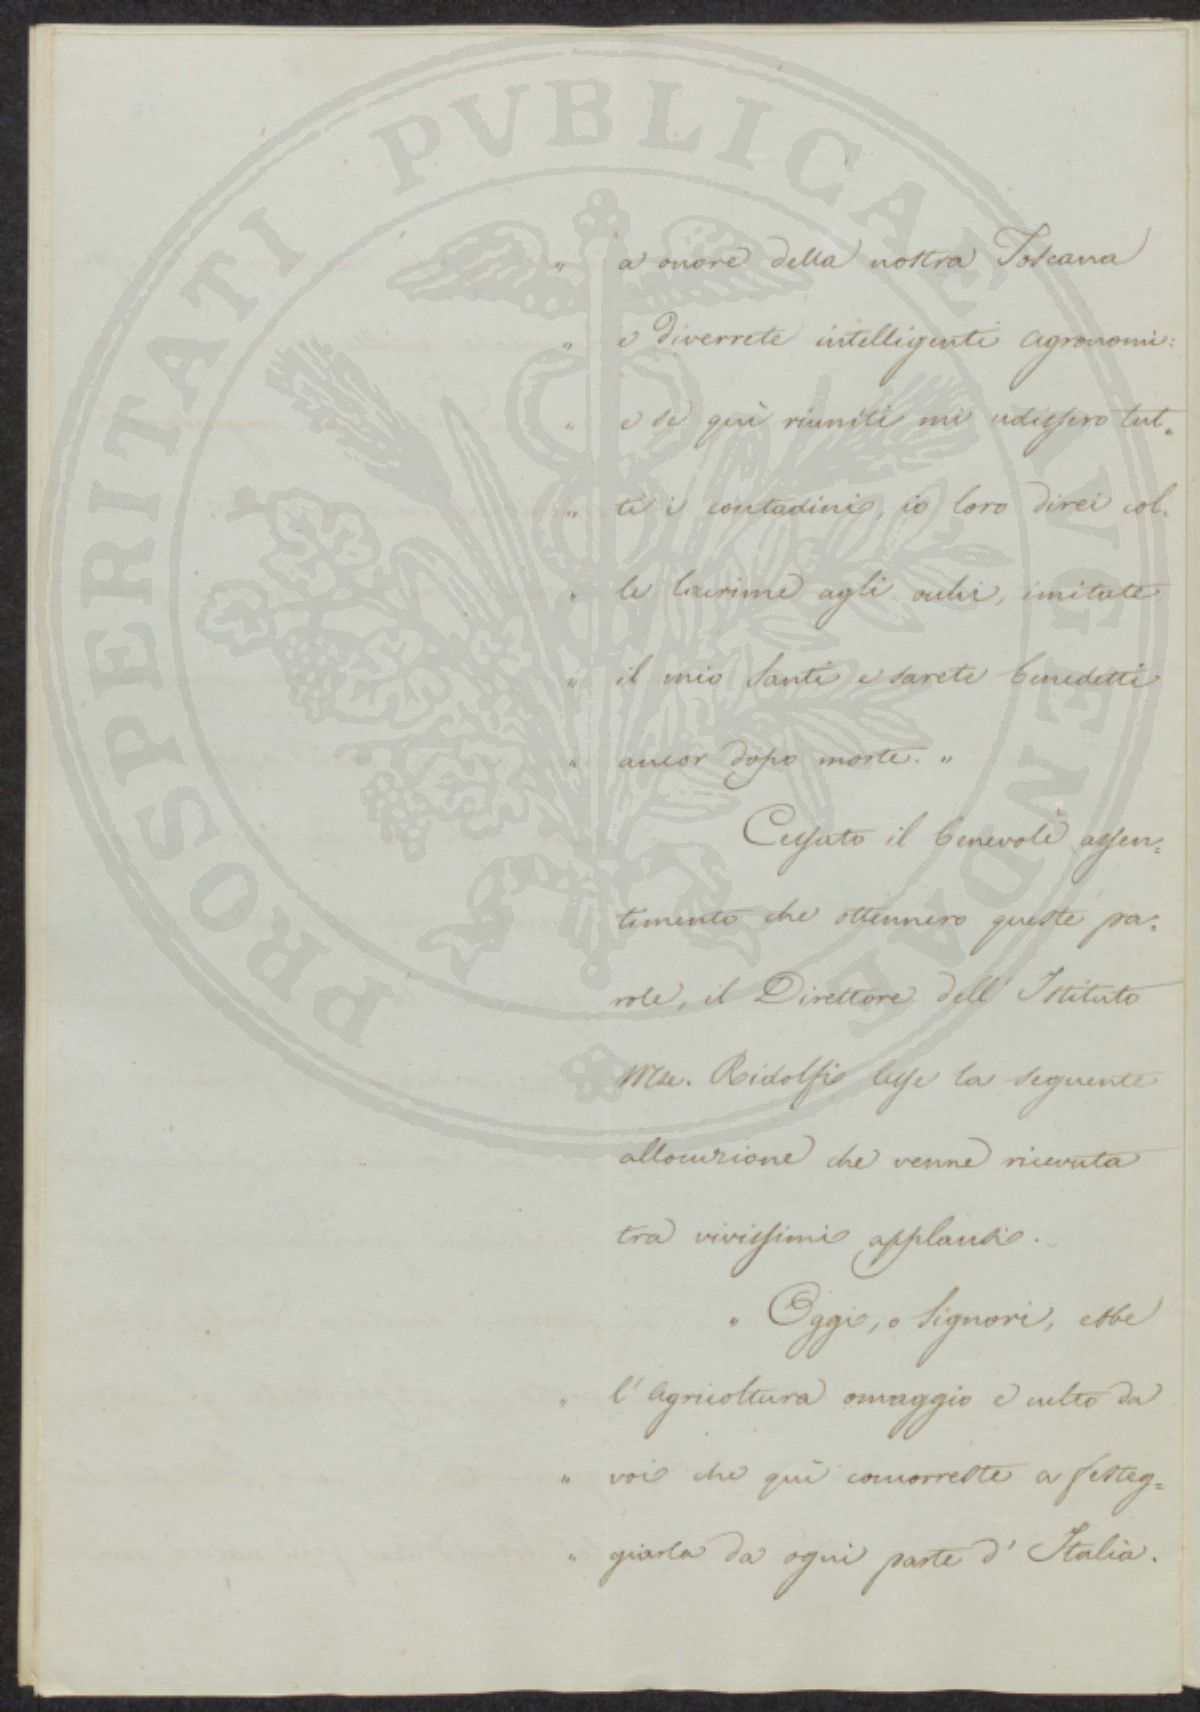 PROSPERITATI PUBLICAE AUGENDAE
" a onore della nostra Toscana
" e diverrete intelligenti agronomi:
" e se quì riuniti mi udissero tut=
" ti i contadini, io loro direi col=
" le lacrime agli occhi, imitate
" il mio Santi e sarete benedetti
" ancor dopo morte. "
Cessato il benevole assen=
timento che ottennero queste pa=
role, il Direttore dell' Istituto
Mse. Ridolfi lesse la seguente
allocuzione che venne ricevuta
tra vivissimi applausi.
" Oggi, o Signori, ebbe
" l' agricoltura omaggio e culto da
" voi che quì concorreste a festeg=
" giarla da ogni parte d' Italia.